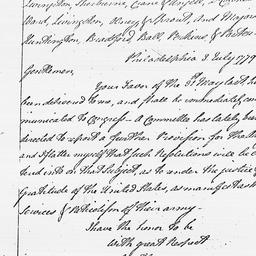 Livingston, Sherburne, Crane & Wyllis,
Ward, Livingston, Knox & Sprout, And Majors
Huntington, Bradford Ball, Perkins &
Philadelphia 3 July 1779
Gentlemen,
Your Favor of the 31 May last, has
been delivered to me, and shall be immediately com
municated to Congress— A Committee has lately been
directed to report a further Provision for the
and I flatter myself that such Resolutions will be
into on that Subject, as to render the justice
gratitude of the United States, as manifest as the
Services & Patriotism of their army—
I have the honor to be
With great Respect